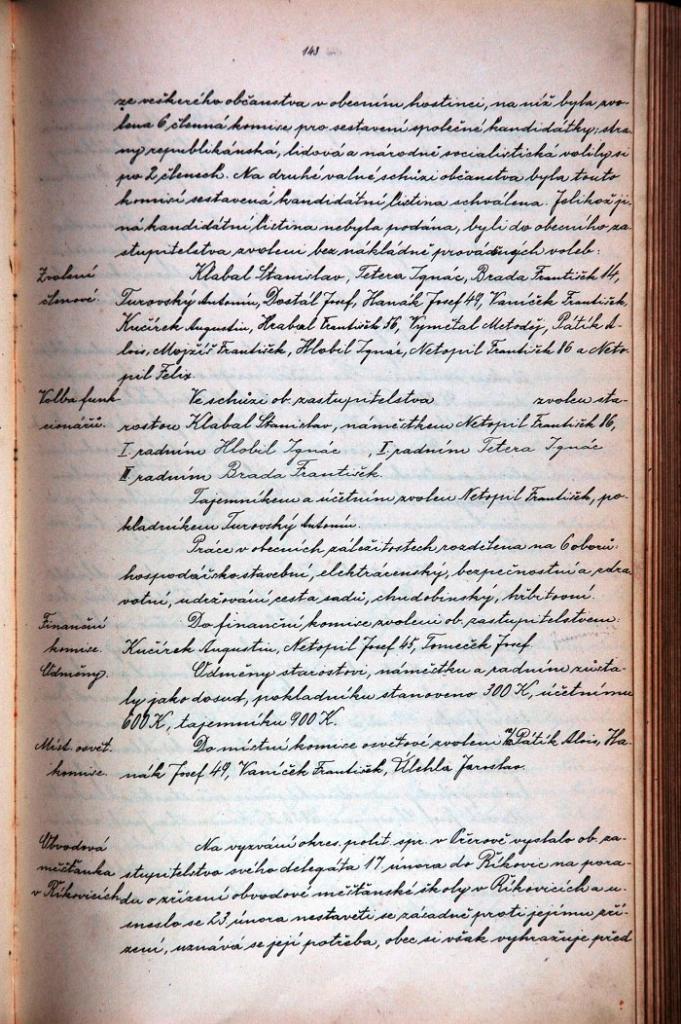 143
ze veškerého občanstva v obecním hostinci, na níž byla zvo-
lena 6 členná komise pro sestavení společné kandidátky; stra-
ny republikánská, lidová a národně socialistická volily si
po 2 členech. Na druhé valné schůzi občanstva byla touto
komisí sestavená kandidátní listina schválena. Jelikož ji-
ná kandidátní listina nebyla podána, byli do obecního za-
stupitelstva zvoleni bez nákladně prováděných voleb:
Zvolení Klabal Stanislav, Tetera Ignác, Brada František 14,
členové. Turovský Antonín, Dostál Josef, Hanák Josef 49, Vaníček František,
Kučírek Augustin, Hrabal František 56, Vymětal Metoděj, Pátík A-
lois, Mojžíš František, Hlobil Ignác, Netopil František 16 a Neto-
pil Felix.
Volba funk- Ve schůzi ob. zastupitelstva zvolen sta-
cionářů. rostou Klabal Stanislav, náměstkem Netopil František 16,
I. radním Hlobil Ignác, I. radním Tetera Ignác
II. radním Brada František.
Tajemníkem a účetním zvolen Netopil František, po-
kladníkem Turovský Antonín.
Práce v obecních záležitostech rozdělena na 6 oborů:
hospodářskostavební, elektrárenský, bezpečnostní a zdra-
votní, udržování cest a sadů, chudobinský, hřbitovní.
Finanční Do finanční komise zvoleni ob. zastupitelstvem:
komise. Kučírek Augustin, Netopil Josef 45, Tomeček Josef.
Odměny. Odměny starostovi, náměstku a radním zůsta-
ly jako dosud, pokladníku stanoveno 300 K, účetnímu
600 K, tajemníku 900 K.
Míst. osvět. Do místní komise osvětové zvoleni Pátík Alois, Ha-
komise. nák Josef 49, Vaníček František, Úlehla Jaroslav.
Obvodová Na vyzvání okres. polit. spr. v Přerově vyslalo ob. za-
měšťanka stupitelstvo svého delegáta 17. února do Říkovic na pora-
v Říkovicích du o zřízení obvodové měšťanské školy v Říkovicích a u-
sneslo se 23. února nestavěti se zásadně proti jejímu zří-
zení, uznává se její potřeba, obec si však vyhražuje před